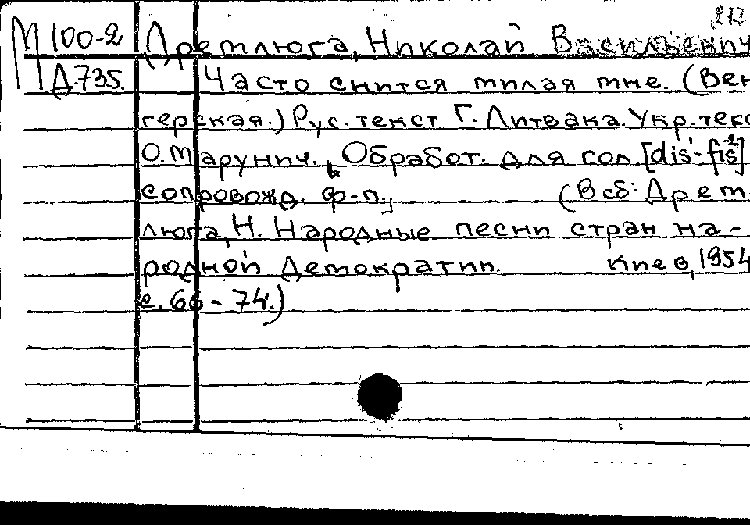 М 100-2 Дремлюга, Николай Васильевич
Д735 Часто снится милая мне. (Вен
герская.) Рус. текст Г. Литвака. Укр. текс
О. Марунич. Обработ. для сол. [dis'-fis²]
сопровожд. ф-п. (В сб: Дрем
люга, Н. Народные песни стран на-
родной демократии. Киев, 1954
с. 66-74.)